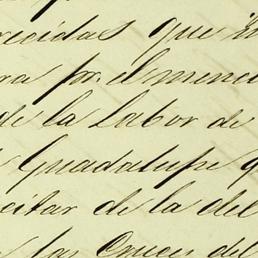 recidas que
ra por el menci
de la Labor de
Guadalupe q
citar de la del
las Cruces del